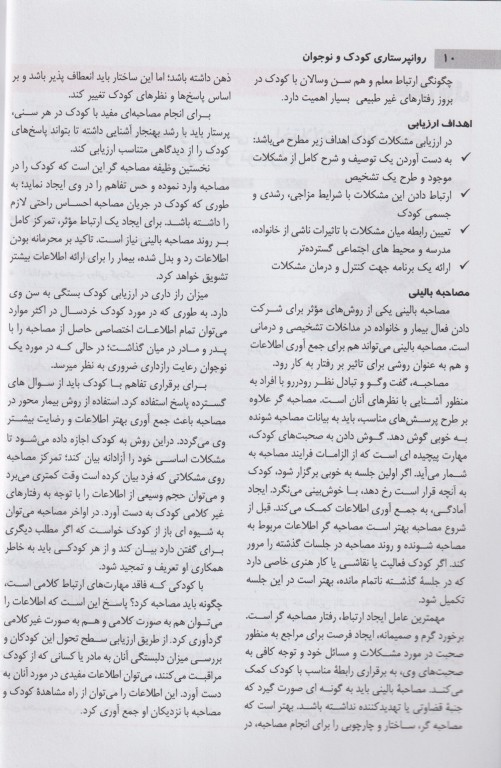 ۱۰ روانپرستاری کودک و نوجوان
چگونگی ارتباط معلم و هم سن وسالان با کودک در
بروز رفتارهای غیر طبیعی بسیار اهمیت دارد.
اهداف ارزیابی
در ارزیابی مشکلات کودک اهداف زیر مطرح می‌باشد:
✓ به دست آوردن یک توصیف و شرح کامل از مشکلات
موجود و طرح یک تشخیص
✓ ارتباط دادن این مشکلات با شرایط مزاجی، رشدی و
جسمی کودک
✓ تعیین رابطه میان مشکلات با تاثیرات ناشی از خانواده،
مدرسه و محیط های اجتماعی گسترده‌تر
✓ ارائه یک برنامه جهت کنترل و درمان مشکلات
مصاحبه بالینی
مصاحبه بالینی یکی از روش‌های مؤثر برای شرکت
دادن فعال بیمار و خانواده در مداخلات تشخیصی و درمانی
است. مصاحبه بالینی می‌تواند هم برای جمع آوری اطلاعات
و هم به عنوان روشی برای تاثیر بر رفتار به کار رود.
مصاحبه، گفت وگو و تبادل نظر رودررو با افراد به
منظور آشنایی با نظرهای آنان است. مصاحبه گر علاوه
بر طرح پرسش‌های مناسب، باید به بیانات مصاحبه شونده
به خوبی گوش دهد. گوش دادن به صحبت‌های کودک،
مهارت پیچیده ای است که از الزامات فرایند مصاحبه به
شمار می‌آید. اگر اولین جلسه به خوبی برگزار شود، کودک
به آنچه قرار است رخ دهد، با خوش‌بینی می‌نگرد. ایجاد
آمادگی، به جمع آوری اطلاعات کمک می‌کند. قبل از
شروع مصاحبه بهتر است مصاحبه گر اطلاعات مربوط به
مصاحبه شونده و روند مصاحبه در جلسات گذشته را مرور
کند. اگر کودک فعالیت یا نقاشی یا کار هنری خاصی دارد
که در جلسهٔ گذشته ناتمام مانده، بهتر است در این جلسه
تکمیل شود.
مهمترین عامل ایجاد ارتباط، رفتار مصاحبه گر است.
برخورد گرم و صمیمانه، ایجاد فرصت برای مراجع به منظور
صحبت در مورد مشکلات و مسائل خود و توجه کافی به
صحبت‌های وی، به برقراری رابطهٔ مناسب با کودک کمک
می‌کند. مصاحبهٔ بالینی باید به گونه ای صورت گیرد که
جنبهٔ قضاوتی یا تهدیدکننده نداشته باشد. بهتر است که
مصاحبه گر، ساختار و چارچوبی را برای انجام مصاحبه، در
ذهن داشته باشد؛ اما این ساختار باید انعطاف پذیر باشد و بر
اساس پاسخ‌ها و نظرهای کودک تغییر کند.
برای انجام مصاحبه‌ای مفید با کودک در هر سنی،
پرستار باید با رشد بهنجار آشنایی داشته تا بتواند پاسخ‌های
کودک را از دیدگاهی متناسب ارزیابی کند.
نخستین وظیفه مصاحبه گر این است که کودک را در
مصاحبه وارد نموده و حس تفاهم را در وی ایجاد نماید؛ به
طوری که کودک در جریان مصاحبه احساس راحتی لازم
را داشته باشد. برای ایجاد یک ارتباط مؤثر، تمرکز کامل
بر روند مصاحبه بالینی نیاز است. تاکید بر محرمانه بودن
اطلاعات رد و بدل شده، بیمار را برای ارائه اطلاعات بیشتر
تشویق خواهد کرد.
میزان راز داری در ارزیابی کودک بستگی به سن وی
دارد. به طوری که در مورد کودک خردسال در اکثر موارد
می‌توان تمام اطلاعات اختصاصی حاصل از مصاحبه را با
پدر و مادر در میان گذاشت؛ در حالی که در مورد یک
نوجوان رعایت رازداری ضروری به نظر میرسد.
برای برقراری تفاهم با کودک باید از سوال های
گسترده پاسخ استفاده کرد. استفاده از روش بیمار محور در
مصاحبه باعث جمع آوری بهتر اطلاعات و رضایت بیشتر
وی می‌گردد. دراین روش به کودک اجازه داده می‌شود تا
مشکلات اساسی خود را آزادانه بیان کند؛ تمرکز مصاحبه
روی مشکلاتی که فرد بیان کرده است وقت کمتری می‌برد
و می‌توان حجم وسیعی از اطلاعات را با توجه به رفتارهای
غیر کلامی کودک به دست آورد. در اواخر مصاحبه می‌توان
به شیوه ای باز از کودک خواست که اگر مطلب دیگری
برای گفتن دارد بیان کند و از هر کودکی باید به خاطر
همکاری او تعریف و تمجید شود.
با کودکی که فاقد مهارت‌های ارتباط کلامی است،
چگونه باید مصاحبه کرد؟ پاسخ این است که اطلاعات را
می‌توان هم به صورت کلامی و هم به صورت غیرکلامی
گردآوری کرد. از طریق ارزیابی سطح تحول این کودکان و
بررسی میزان دلبستگی آنان به مادر یا کسانی که از کودک
مراقبت می‌کنند، می‌توان اطلاعات مفیدی در مورد آنان به
دست آورد. این اطلاعات را می‌توان از راه مشاهدهٔ کودک و
مصاحبه با نزدیکان او جمع آوری کرد.